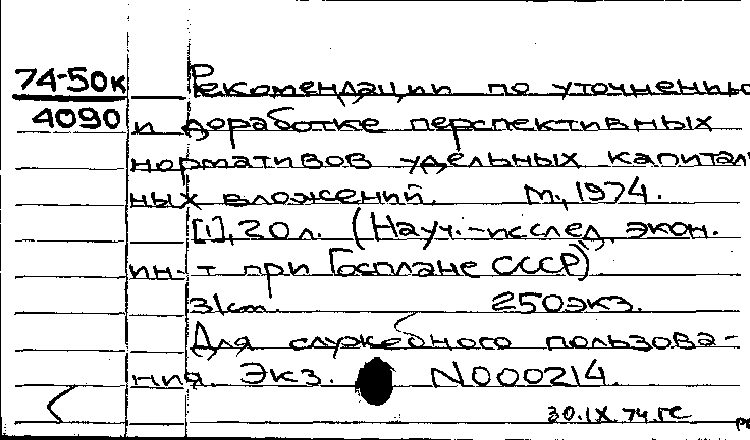 74-50к
4090
Рекомендации по уточнению
и доработке перспективных
нормативов удельных капиталь
ных вложений. М., 1974.
[1], 20 л. (Науч.-исслед. экон.
ин-т при Госплане СССР)
250экз.
Для служебного пользова-
ния. Экз. N000214.
30.IX.74.